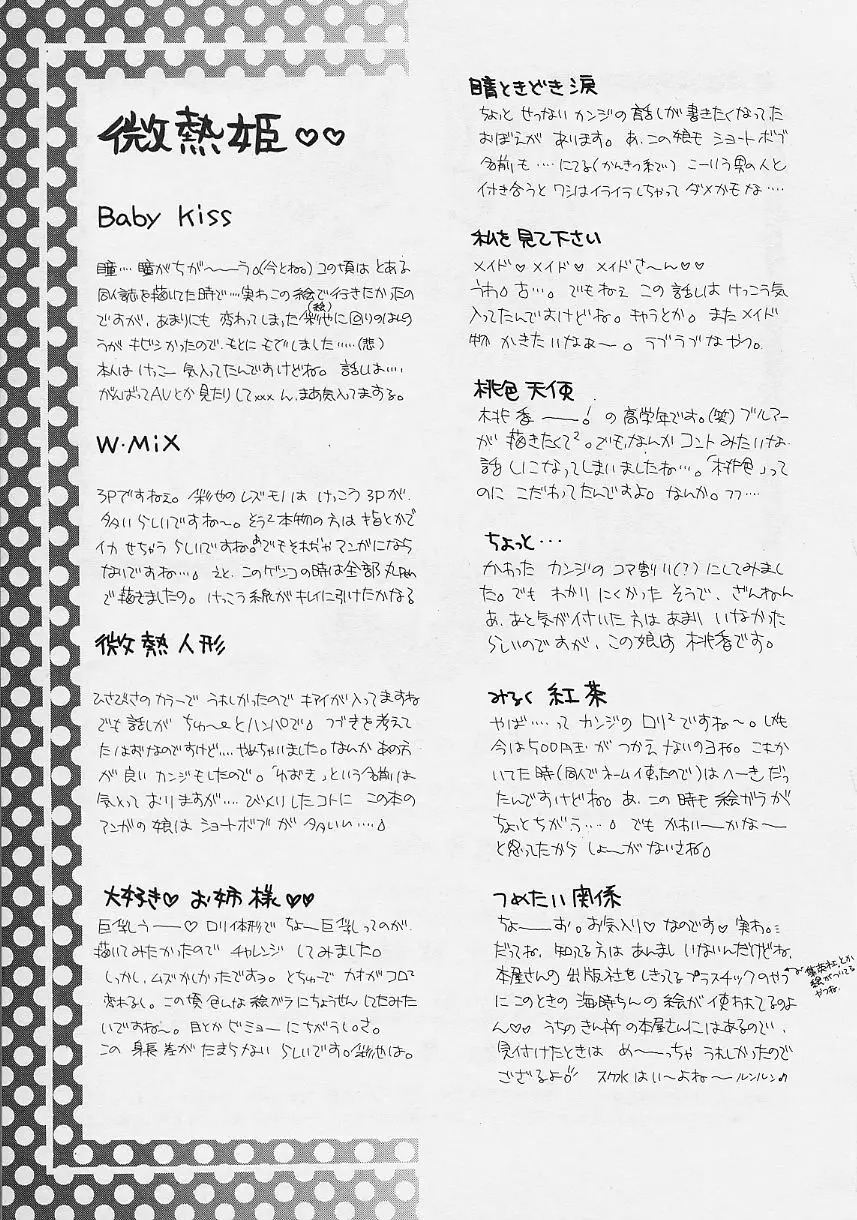 微熱姫♡♡
Baby Kiss
瞳…瞳がちが〜〜う。(今とね。)コの頃は とある
同人誌を描いてた時で…実わこの絵で行きたかったの
ですが、あまりにも 変わってしまった(絵)彩也に回りのはんの
うが キビシかったので、もとに もでしました……(悲)
本人は けっこー 気入ってたんですけどね。 話しは…
がんばってAVとか見たりしてxxx ん、まあ気入ってまする。
W・MiX
3Pですねぇ。彩也の レズ モノは けっこう 3Pが、
多い らしいですね〜。どう²本物の方は 指とかで
イカ せちゃう らしいですね。でもそれぢゃマンガになら
ないですね…。 えと、このゲンコの時は全部丸Pen
で 描きましたの。 けっこう 線が キレイに引けたかなる
微熱人形
ひさびさの カラーで うれしかったので キアイが入ってますね
でも 話しが ちゅ〜と ハンパで。 つづきを考えて
たはずなのですけど…やめちゃいました。なんか あの方
が 良い カンジもしたので。「ゆずき」という名前は
気入って おりますが… びっくりしたコトに この本の
マンガの 娘は ショートボブ が 多いい…。
大好き♡ お姉様♡♡
巨乳しう〜♡ ロリ体形で ちょー巨乳ってのが、
描いてみたかったので チャレンジ してみました。
しかし、ムズかしかったですョ。とちゅーで カオがコロコロ
変わるし。この頃 色んな絵ガラにちょうせん してたみた
いですね〜。目とか ビミョーにちがうしさ。
この 身長差が たまらない らしいです。彩也は。
晴ときどき涙
ちょっと せつない カンジの 話しが 書きたくなってた
おぼえが あります。 あ、この娘も ショートボブ
名前も…にてる(かんきつ系で) こーいう男の人と
付き合うと ワシはイライラしちゃって ダメかもな…
私を見て下さい
メイド♡メイド♡ メイドさ〜ん♡♡
うわ。古…。でもねぇ この話しは けっこう気
入ってたんですけどね。キャラとか。 また メイド
物 かきたいなぁ〜。ラブラブなヤツ。
桃色天使
桃香〜! の 高学年です。(笑) ブルマー
が 描きたくて²。でも、なんか コントみたいな
話しになってしまいましたね…。「桃色」って
のに こだわってたんですよ。なんか。フフ…
ちょっと…
かわった カンジの コマ割り(?)にしてみまし
た。でも わかりにくかった そうで、ざんねん
あ、あと気が付いた方は あまり いなかった
らしいのですが、この娘は 桃香です。
みるく紅茶
やば…って カンジの ロリ²ですね〜。しかも
今は500円玉が つかえないのヨね。これか
いてた時(同人でネーム使ったので)はへーきだっ
たんですけどね。あ、この時も絵ガラが
ちょっとちがう…。 でも かわいーかな〜
と思ってたから しょーがないさね。
つめたい関係
ちょーーす。お気入り♡なのです♡実わ。…
だってね、知ってる方は あんまし いないんだけどね、
本屋さんの 出版社をしきってるプラスチックのやつ
←集英社、とか
絵がついてる
やつね
にこのときの 海時ちんの 絵が 使われてるのよ
ん♡♡ うちのきん所の本屋さんにはあるので、
見付けたときは め〜っちゃ うれしかったので
ござるよ。 スク水はい〜よね〜ルンルン♪